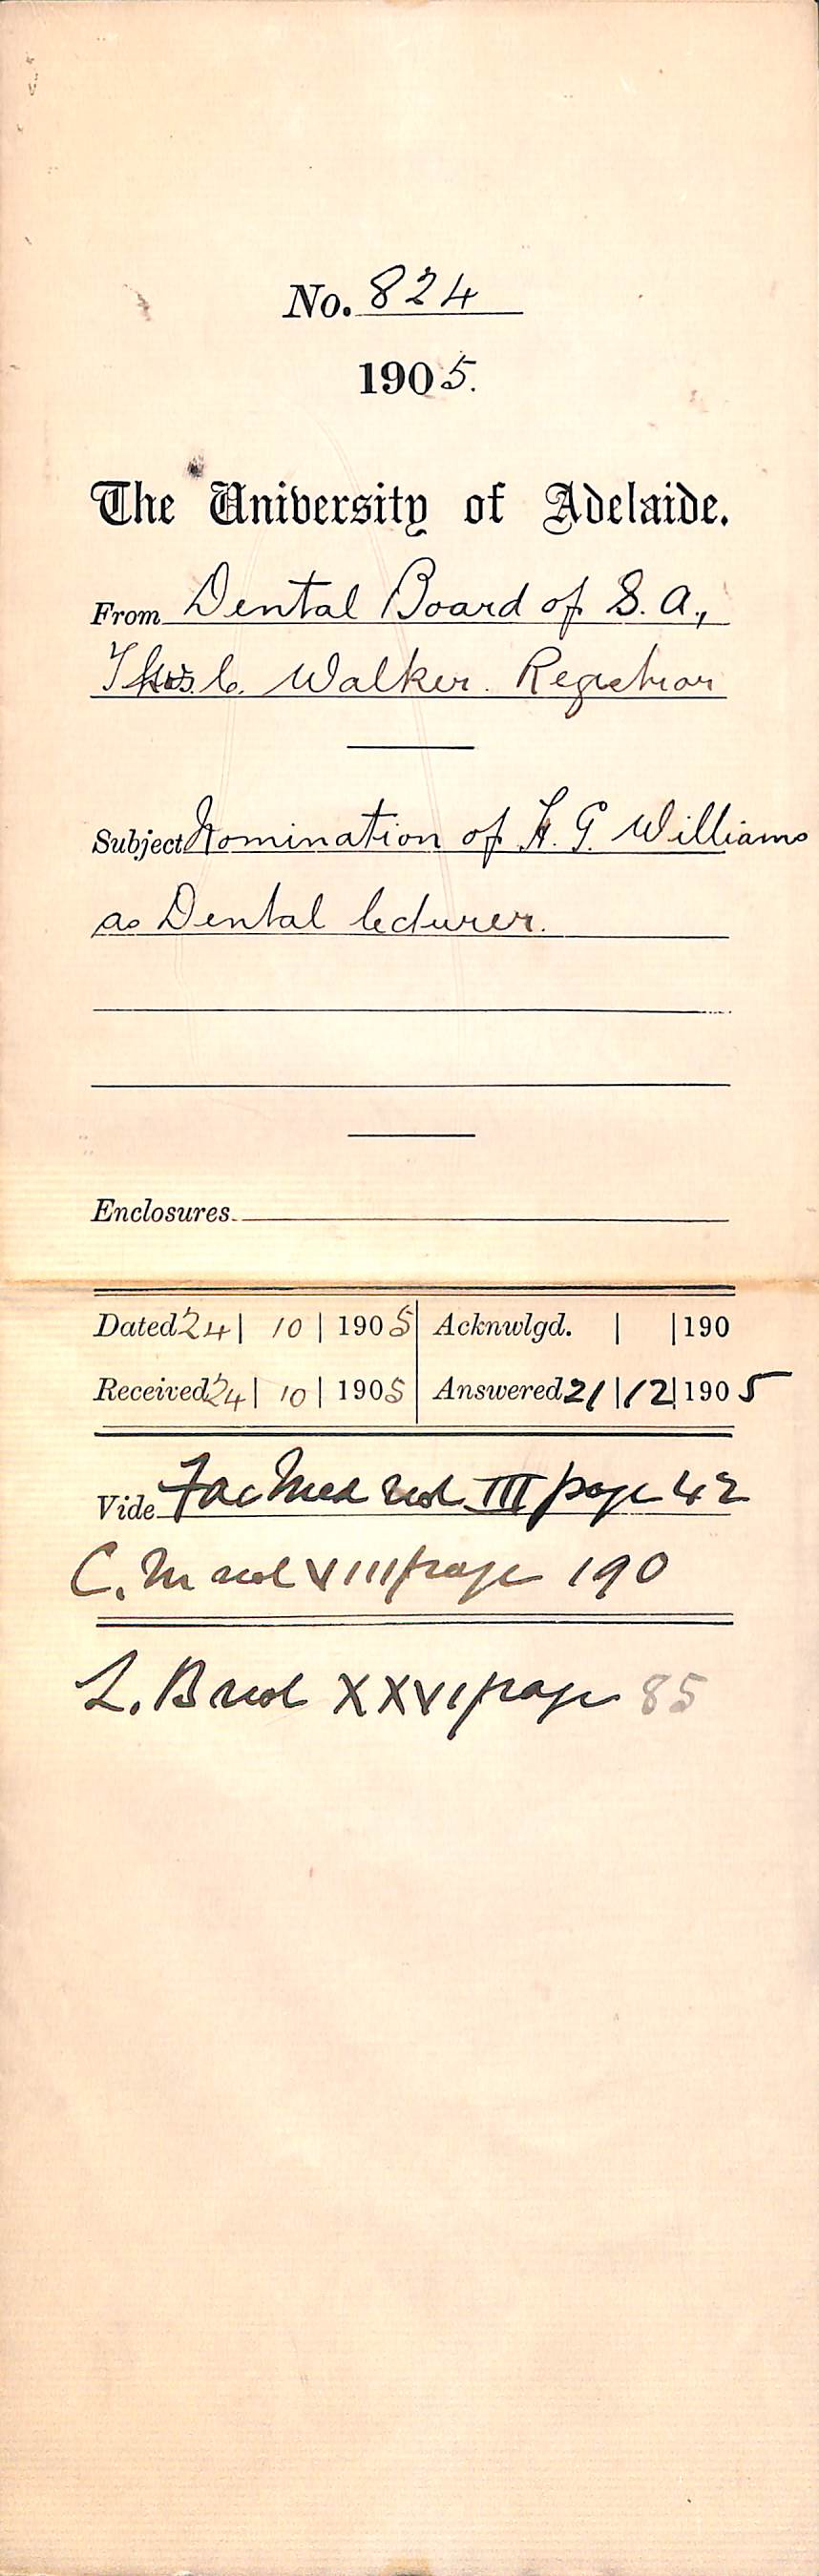 No. 824
1905.
The University of Adelaide.
From Dental Board of S.A.,
Thos. C. Walker. Registrar
Subject Nomination of H. G. Williams
as Dental lecturer.
Enclosures
Dated 24 | 10 | 1905 | Acknwlgd. | | 190
Received 24 | 10 | 1905 | Answered 21 | 12 | 1905
Vide Fac Med vol III page 42
C. M vol VIII page 190
L. B vol XXVI page 85